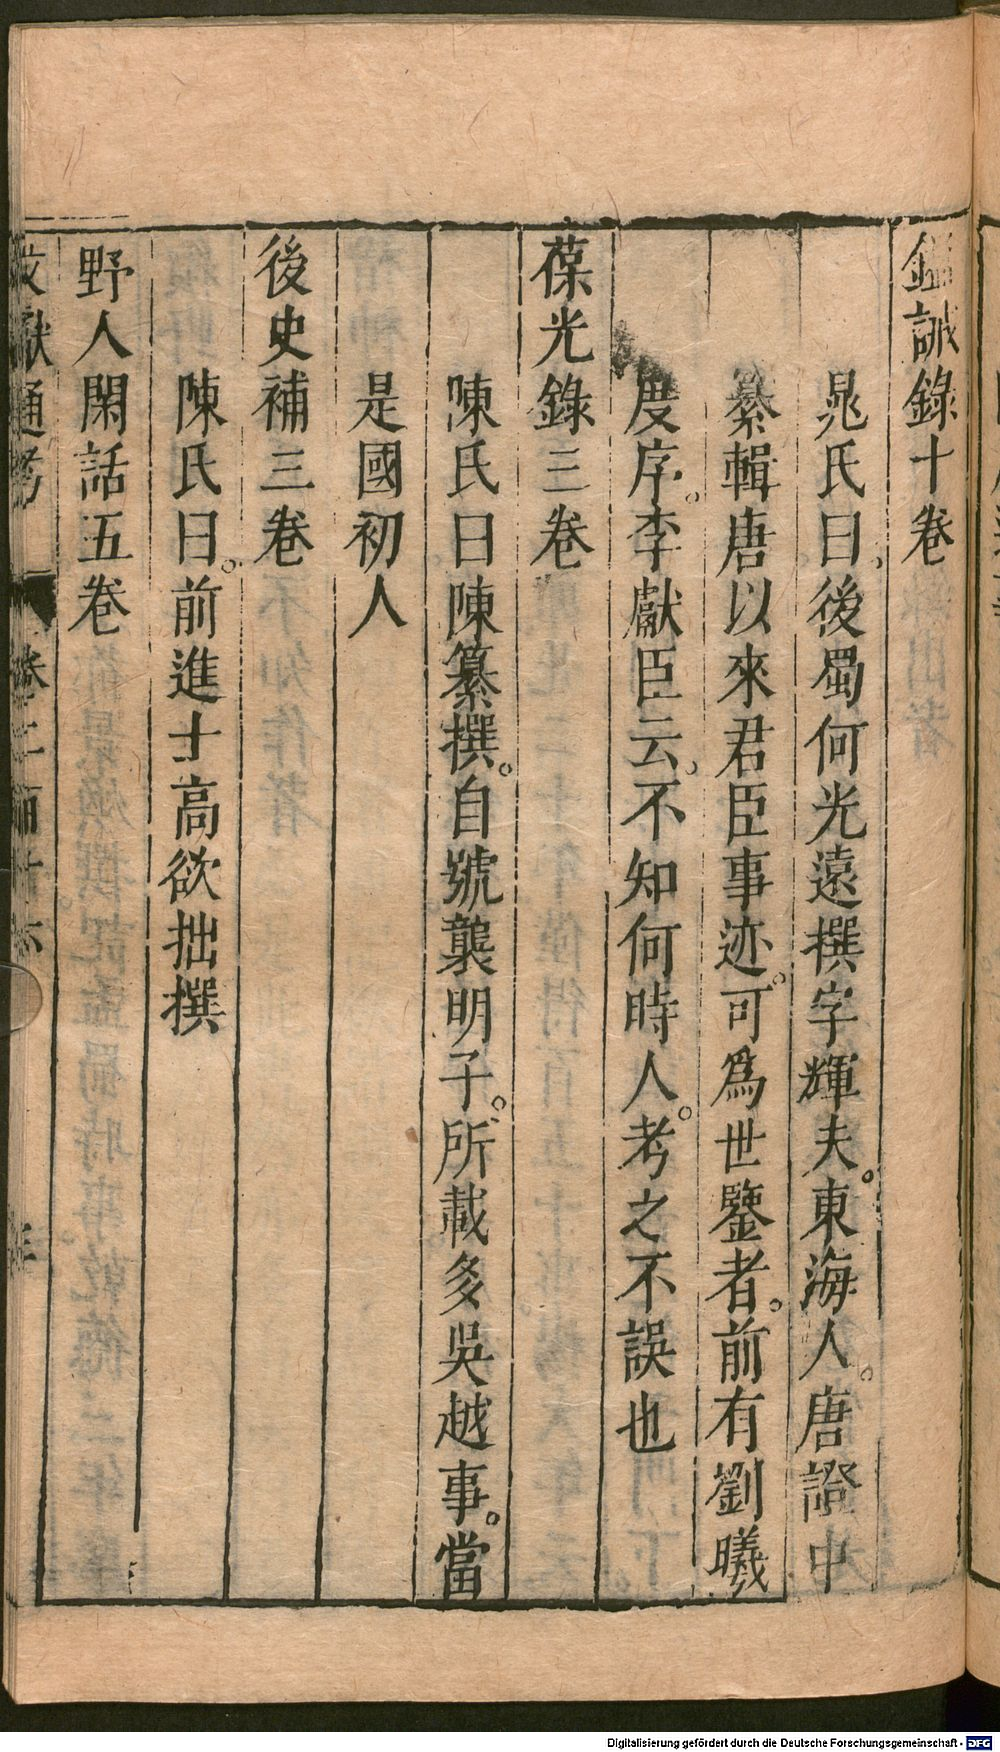 鑑誡錄十卷
晁氏曰後蜀何光遠撰字輝夫。東海人。唐證中
纂輯唐以來君臣事迹。可爲世鑒者。前有劉曦
度序。李獻臣云。不知何時人。考之不誤也
葆光錄三卷
陳氏曰陳纂撰。自號襲明子。所載多吳越事。當
是國初人
後史補三卷
陳氏曰。前進士高欲拙撰
野人閑話五卷
文獻通考 卷二百十六
Digitalisierung gefördert durch die Deutsche Forschungsgemeinschaft - DFG